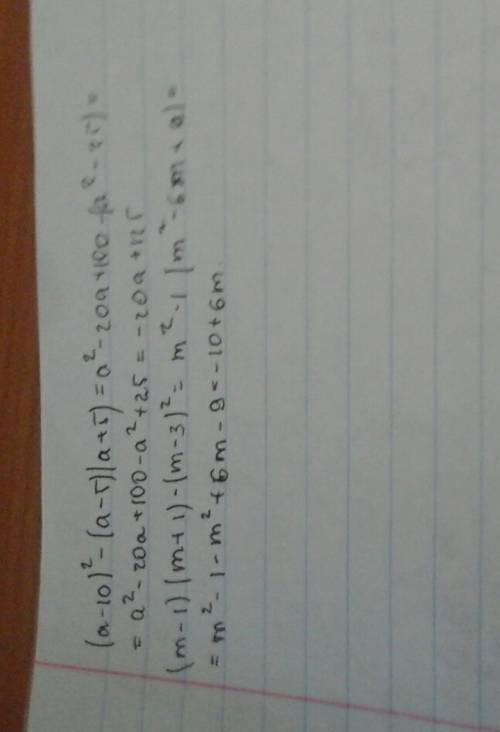 (a-10)² - (a-5)(a+5) = a² - 20a + 100 - (a² - 25) =
= a² - 20a + 100 - a² + 25 = -20a + 125
(m-1)(m+1) - (m-3)² = m² - 1 (m² - 6m + 9) =
= m² - 1 - m² + 6m - 9 = -10 + 6m.